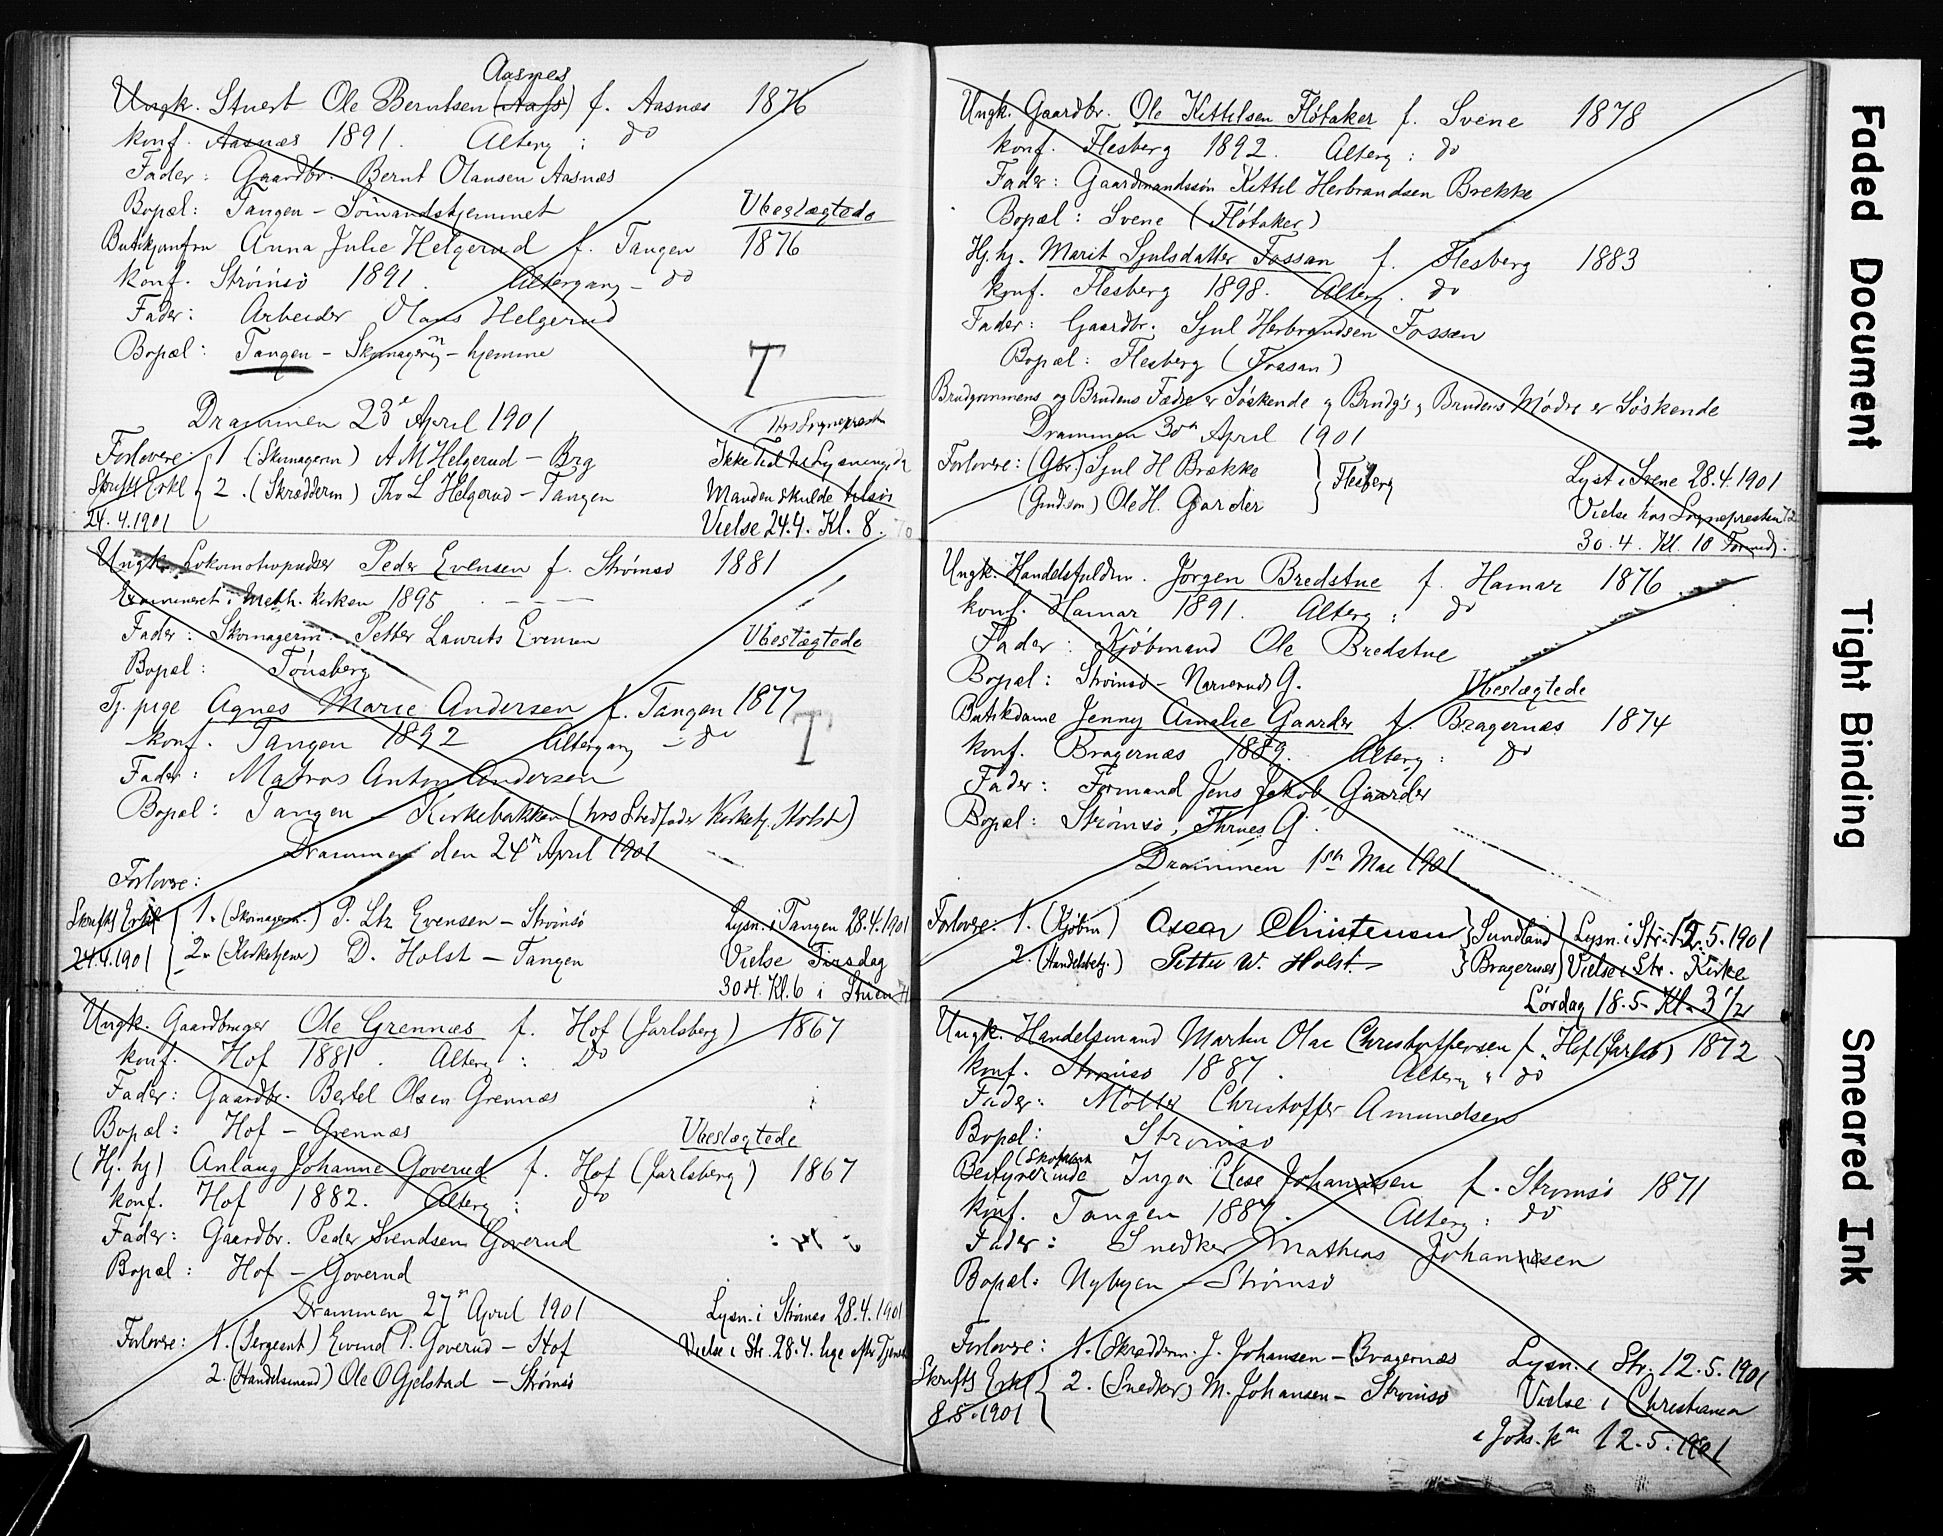 Aasnes
Ungk. Stuert Ole Berntsen (Aass) f. Aasnæs 1876
konf. Aasnæs 1891. Alterg : do
Fader: Gaardbr. Bernt Olausen Aasnæs
Bopæl: Tangen - Sømandshjemmet Ubeslægtede
Butikjomfru Anna Julie Helgerud f. Tangen 1876
konf. Strømsø 1891. Altergang - do
Fader: Arbeider Olaus Helgerud
Bopæl: Tangen - hjemme
T
Drammen 23e April 1901 Hos Sognepresten
Forlovere: 1 (Skomagerm) A M Helgerud - Brg Ikke
Skriftl Erkl 2. (Skrædderm) Th. L Helgerud - Tangen Manden skulde tilsøs
24.4.1901 Vielse 24.4. Kl. 8.
Ungk. Lokomotivpudser Peder Evensen f. Strømsø 1881
i Meth. kirken 1895
Fader: Skomagerm. Petter Laurits Evensen Ubeslægtede
Bopæl: Tønsberg
Tj. pige Agnes Marie Andersen f. Tangen 1877
konf. Tangen 1892 Altergang - do T
Fader: Matros Anton Andersen
Bopæl: Tangen - Kirkebakken (hos Stedfader Kirketj. Holst)
Drammen den 24n April 1901
Forlovere:
Skriftl Erkl 1. (Skomagerm.) P. Ltz Evensen - Strømsø Lysn. i Tangen 28.4.1901
24.4.1901 2. (Kirketjener) D. Holst - Tangen Vielse Tirsdag
30.4. Kl. 6 i Stuen
Ungk. Gaardbruger Ole Grennæs f. Hof (Jarlsberg) 1867
konf. Hof 1881. Alterg : Do
Fader: Gaardbr. Bertel Olsen Grennæs
Bopæl: Hof - Grennæs Ubeslægtede
(Hj. hj) Anlaug Johanne Goverud f. Hof (Jarlsberg) 1867
konf. Hof 1882. Alterg : do
Fader: Gaardbr. Peder Svendsen Goverud
Bopæl: Hof - Goverud
Drammen 27n April 1901 Lysn. i Strømsø 28.4.1901
Forlovere: 1. (Sergeant) Eivind P. Goverud - Hof Vielse i Str. 28.4. lige efter
2. (Handelsmand) Ole O Gjelstad - Strømsø
Ungk. Gaardbr. Ole Kittilsen Fløtaker f. Svene 1878
konf. Flesberg 1892. Alterg : do
Fader: Gaardmandssøn Kittil Herbrandsen Brekke
Bopæl: Svene (Fløtaker)
Hj. hj. Marit Sjulsdatter Fossan f. Flesberg 1883
konf. Flesberg 1898. Alterg. do
Fader: Gaardbr. Sjul Herbrandsen Fossan
Bopæl: Flesberg (Fossan)
Brudgommens og Brudens Fædre er Søskende og Brudg's og Brudens Mødre er Søskende
Drammen 30n April 1901
Forlovere: (Gbr.) Sjul H Brække Flesberg Lyst i Svene 28.4.1901
(Gmd.søn) Ole H. Garder Vielse hos Sognepresten
30.4. Kl. 10 Formd.
Ungk. Handelsfuldm. Jørgen Bredstue f. Hamar 1876
konf. Hamar 1891. Alterg : do
Fader: Kjøbmand Ole Bredstue
Bopæl: Strømsø - G. Ubeslægtede
Butikdame Jenny Amalie Gaarder f. Bragernæs 1874
konf. Bragernæs 1889. Alterg : do
Fader: Formand Jens Jakob Gaarder
Bopæl: Strømsø, Thrues G.
Drammen 1ste Mai 1901
Forlovere: 1. (Kjøbm) Oscar Christensen (Sundland) Lysn. i Str. 12.5.1901
2. (Handelsbetj.) Petter W. Holst (Bragernæs) Vielse i Str. Kirke
Lørdag 18.5. Kl. 3 1/2
Ungk. Handelsmand Martin Olai Christoffersen f. Hof (Jarlsb) 1872
konf. Strømsø 1887. Alterg : do
Fader: Møller Christoffer Amundsen
Bopæl: Strømsø
Bestyrerinde Inga Elise Johannsen f. Strømsø 1871
konf. Tangen 1887. Alterg : do
Fader: Snedker Mathias Johannsen
Bopæl: Nybyen - Strømsø
Forlovere: 1. (Skrædderm. J. Johansen - Bragernæs Lysn. i Str. 12.5.1901
Skriftl Erkl 2. (Snedker) M. Johansen - Strømsø Vielse i Christiania
8.5.1901 i Joh.s. k. 12.5.1901
Faded Document
Tight Binding
Smeared Ink